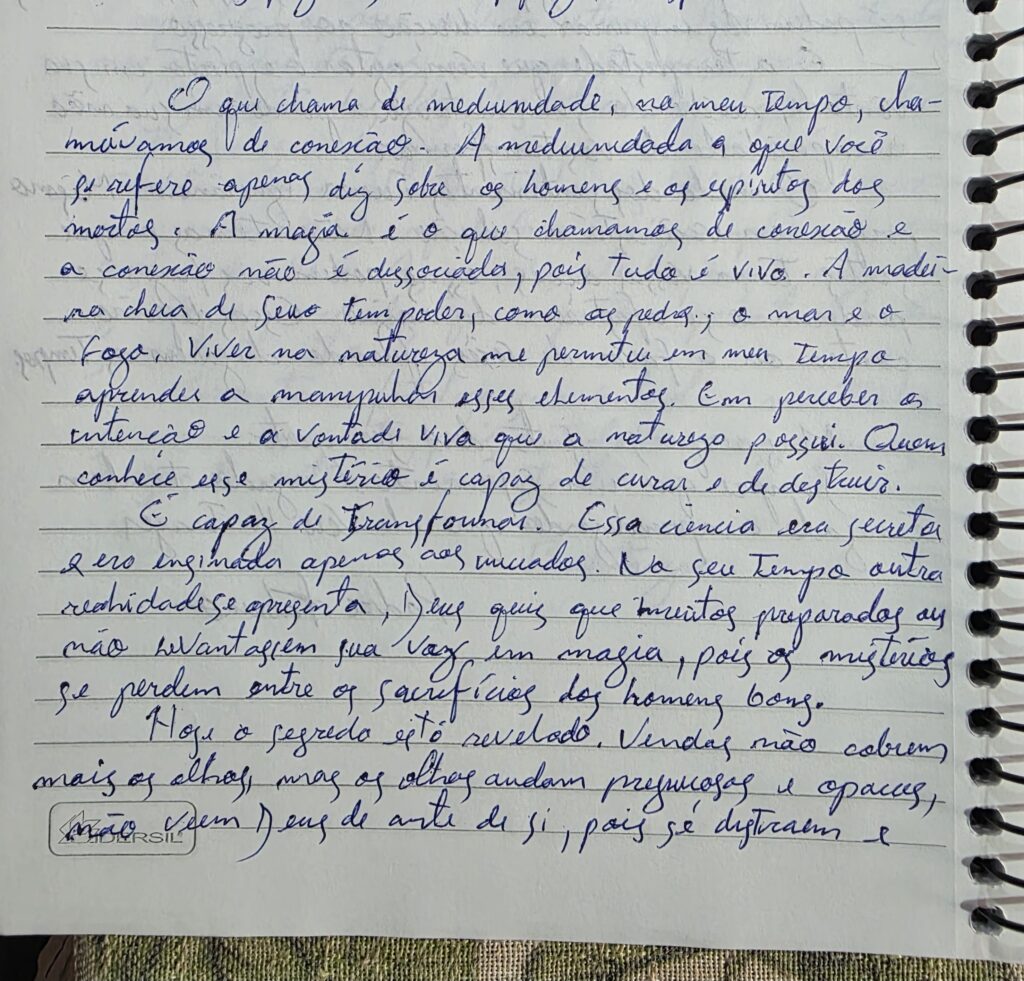 O que chama de mediunidade, no meu tempo, cha-
mávamos de conexão. A mediunidada a que você
se refere apenas diz sobre os homens e os espíritos dos
mortos. A magia é o que chamamos de conexão e
a conexão não é dissociada, pois tudo é vivo. A madei-
ra cheia de seiva tem poder, como as pedras, o mar e o
fogo. Viver na natureza me permitiu em meu tempo
aprender a manipular esses elementos. Em perceber a
intenção e a vontade viva que a natureza possui. Quem
conhece esse mistério é capaz de curar e de destruir.
É capaz de transformar. Essa ciência era secreta
e era ensinada apenas aos iniciados. No seu tempo outra
realidade se apresenta, Deus quis que muitos preparados ou
não levantassem sua voz em magia, pois os mistérios
se perdem entre os sacrifícios dos homens bons.
Hoje o segredo está revelado. Vendas não cobrem
mais os olhos, mas os olhos andam preguiçosos e opacos,
não veem Deus de ante de si, pois se distraem e
IDERSIL